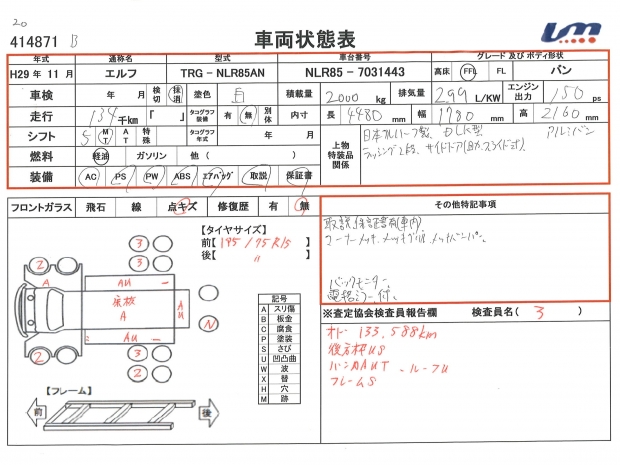 20
414871 B
車両状態表
Um
年式 通称名 型式 車台番号 グレード 及び ボディ形状
H29 年 11 月 エルフ TRG - NLR85AN NLR85 - 7031443 高床 FFL FL バン
車検 年 月 検切 抹消 塗色 白 積載量 2000 kg 排気量 299 L/KW エンジン出力 150 ps
走行 134 千km 「 」 タコグラフ装備 有 無 別体 内寸 長 4480 mm 幅 1780 mm 高 2160 mm
シフト 5 MT AT 特殊 タコグラフ年式 年 月 上物特装品関係 日本フルハーフ製、 アルミバン
燃料 軽油 ガソリン 他 ( ) ラッシング2段、サイドドア(助、スライド式)
装備 AC PS PW ABS エアバッグ 取説 保証書
フロントガラス 飛石 線 点キズ 修復歴 有 無 その他特記事項
取説、保証書有(車内)
コーナーメッキ、メッキグリル、メッキバンパー。
バックモニター、
電格ミラー付。
【タイヤサイズ】
前【 195 / 75 R15 】
後【 〃 】
3
2
A
AU
床板
A
AU
AU
N
2
3
2
記号
A スリ傷
B 板金
C 腐食
P 塗装
S さび
U 凹凸曲
W 波
X 替
H 穴
M 跡
【フレーム】
前
後
※査定協会検査員報告欄 検査員名( 3 )
オドー 133,588km
後方枠US
バンAAUT、ルーフU
フレームS